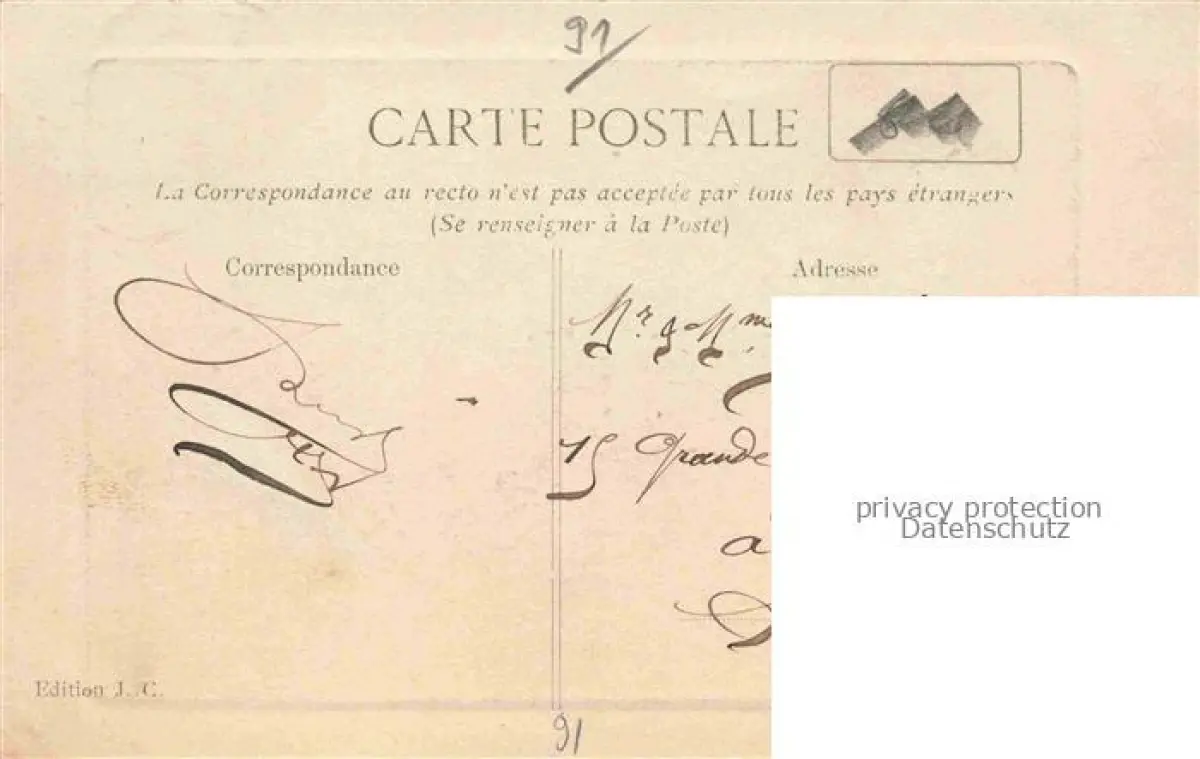 91
CARTE POSTALE
La Correspondance au recto n'est pas acceptée par tous les pays étrangers
(Se renseigner à la Poste)
Correspondance
Adresse
Mr & Mm
15 Grande
a
privacy protection
Datenschutz
Edition J. C.
91